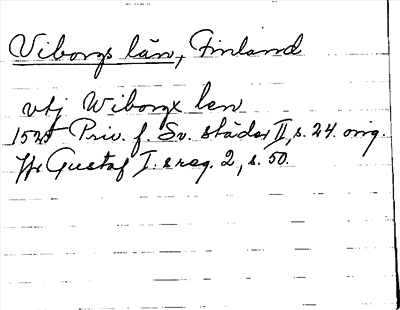 Viborgs län, Finland
vtj Wiborgx len
1525 Priv. f. Sv. städer II, s. 24. orig.
Gustaf I:s reg. 2, s. 50.